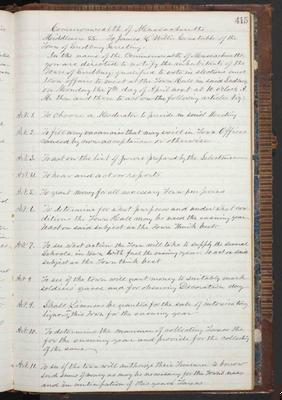 415
Commonwealth of Massachusetts
Middlesex SS. To James G. Willis Constable of the
Town of Sudbury Greeting.
In the name of the Commonwealth of Massachusetts
you are directed to notify the inhabitants of the
Town of Sudbury qualified to vote in elections and
town affairs to meet at the Town Hall in said Sudbury
on Monday the 7th day of April next at 10 o'clock A.
M. then and there to act on the following articles viz:
Art. 1. To choose a Moderator to preside in said Meeting
Art. 2. To fill any vacancies that may exist in Town Offices
caused by non acceptance or otherwise
Art. 3. To act on the list of Jurors prepared by the Selectmen
Art. 4. To hear and act on reports.
Art. 5. To grant money for all necessary Town purposes
Art. 6. To determine for what purposes and under what con
ditions the Town Hall may be used the ensuing year
or act on said subject as the Town think best
Art. 7. To see what action the Town will take to supply the several
Schools in town with fuel the ensuing year or act on said
subject as the Town think best
Art. 8. To see if the town will grant money to suitably mark
soldiers graves and for observing Decoration day
Art. 9. Shall Licenses be granted for the sale of intoxicating
liquors in this Town for the ensuing year
Art. 10. To determine the manner of collecting Taxes
for the ensuing year and provide for the collection
of the same
Art. 11. To see if the town will authorize their Treasurer to borrow
such sums of money as may be necessary for the Town's use
and in anticipation of this years Taxes